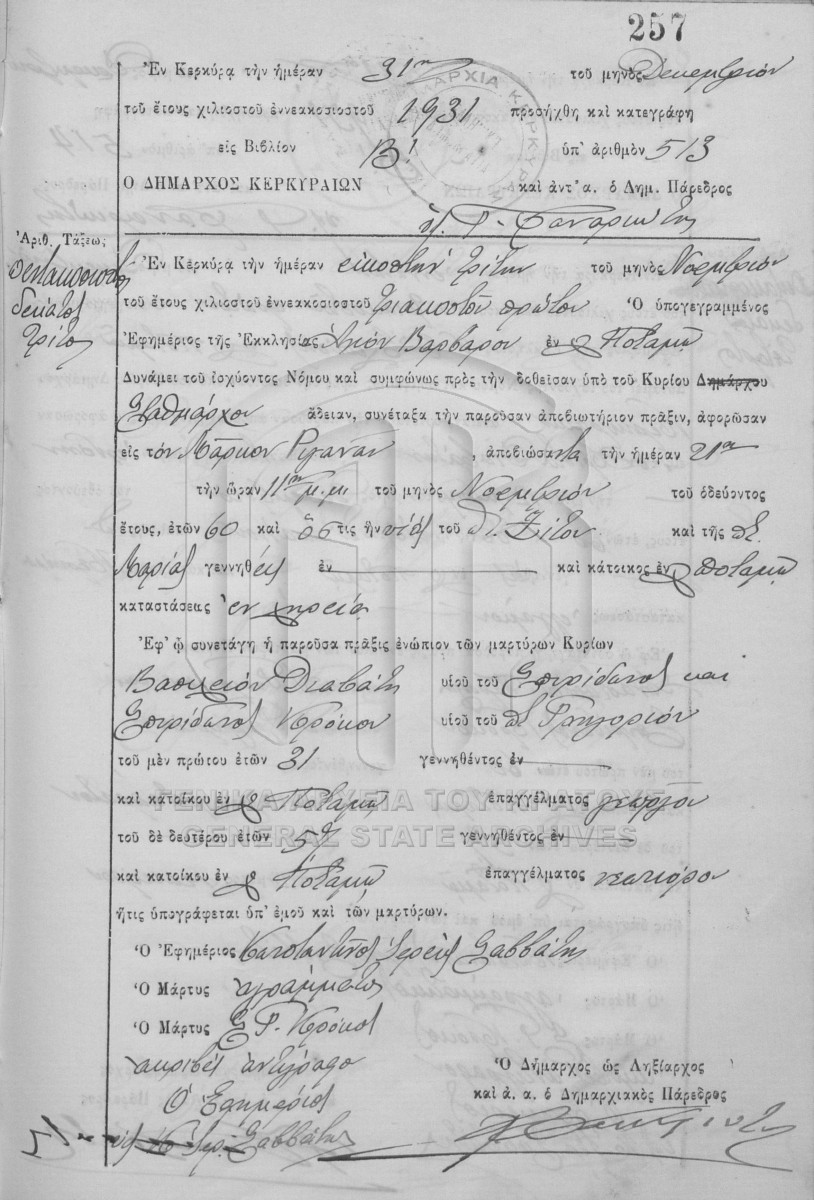 257
Ἐν Κερκύρᾳ τὴν ἡμέραν 31ην τοῦ μηνὸς Δεκεμβρίου
τοῦ ἔτους χιλιοστοῦ ἐννεακοσιοστοῦ 1931 προσήχθη καὶ κατεγράφη
εἰς Βιβλίον Β! ὑπ' ἀριθμὸν 513
Ο ΔΗΜΑΡΧΟΣ ΚΕΡΚΥΡΑΙΩΝ καὶ ἀντ' α. ὁ Δημ. Πάρεδρος
Ἀριθ. Τάξεως
πεντακοσιοστὸς
δέκατος
τρίτος
Ἐν Κερκύρᾳ τὴν ἡμέραν εἰκοστὴν τρίτην τοῦ μηνὸς Νοεμβρίου
τοῦ ἔτους χιλιοστοῦ ἐννεακοσιοστοῦ τριακοστοῦ πρώτου Ὁ ὑπογεγραμμένος
Ἐφημέριος τῆς Ἐκκλησίας Ἁγίου Βαρβάρου ἐν Ποταμῷ
Δυνάμει τοῦ ἰσχύοντος Νόμου καὶ συμφώνως πρὸς τὴν δοθεῖσαν ὑπὸ τοῦ Κυρίου Δημάρχου
Σταθμάρχου ἄδειαν, συνέταξα τὴν παροῦσαν ἀποβιωτήριον πρᾶξιν, ἀφορῶσαν
εἰς τὸν Μάρκον Ριγανᾶν, ἀποβιώσαντα τὴν ἡμέραν 21ην
τὴν ὥραν 11ην μ.μ. τοῦ μηνὸς Νοεμβρίου τοῦ ὁδεύοντος
ἔτους, ἐτῶν 60 καὶ ὅστις ἦν υἱὸς τοῦ π. Ζίτου καὶ τῆς π.
Μαρίας γεννηθεὶς ἐν καὶ κάτοικος ἐν Ποταμῷ
καταστάσεως ἐν χηρείᾳ
Ἐφ' ᾧ συνετάγη ἡ παροῦσα πρᾶξις ἐνώπιον τῶν μαρτύρων Κυρίων
Βασιλείου Διαβάτη υἱοῦ τοῦ Σπυρίδωνος καὶ
Σπυρίδωνος Κρόκου υἱοῦ τοῦ π. Γρηγορίου
τοῦ μὲν πρώτου ἐτῶν 31 γεννηθέντος ἐν
καὶ κατοίκου ἐν Ποταμῷ ἐπαγγέλματος γεωργοῦ
ΓΕΝΙΚΑ ΑΡΧΕΙΑ ΤΟΥ ΚΡΑΤΟΥΣ
τοῦ δὲ δευτέρου ἐτῶν γεννηθέντος ἐν
GENERAL STATE ARCHIVES
καὶ κατοίκου ἐν Ποταμῷ ἐπαγγέλματος νεωκόρου
ἥτις ὑπογράφεται ὑπ' ἐμοῦ καὶ τῶν μαρτύρων.
Ὁ Ἐφημέριος Κωνσταντῖνος Ἱερεὺς Σαββάτης
Ὁ Μάρτυς ἀγράμματος
Ὁ Μάρτυς Σ Γ. Κρόκος
ἀκριβὲς ἀντίγραφο Ὁ Δήμαρχος ὡς Ληξίαρχος
Ὁ Ἐφημέριος καὶ ἀ. α. ὁ Δημαρχιακὸς Πάρεδρος
Κ. Ἱερ. Σαββάτης